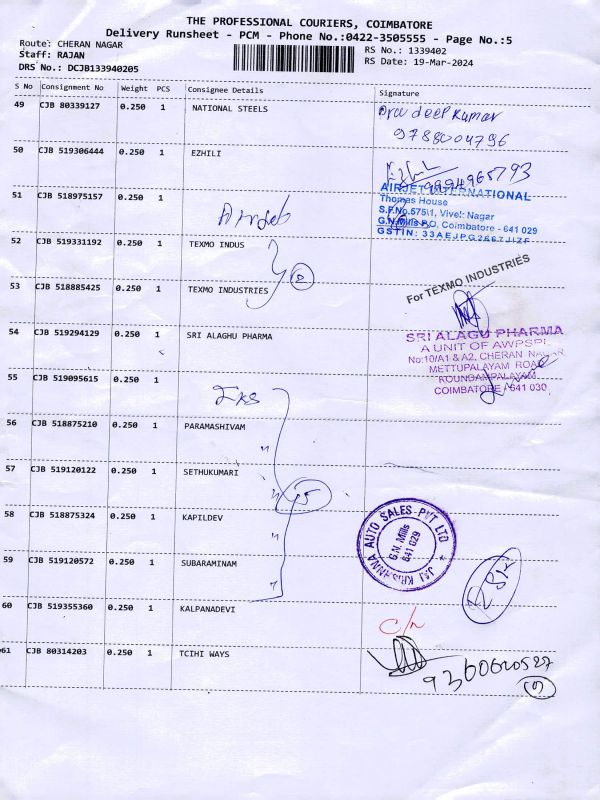 THE PROFESSIONAL COURIERS, COIMBATORE
Delivery Runsheet - PCM - Phone No.:0422-3505555 - Page No.:5
Route: CHERAN NAGAR
RS No.: 1339402
Staff: RAJAN
RS Date: 19-Mar-2024
DRS No.: DCJB133940205
S No Consignment No Weight PCS Consignee Details Signature
49 CJB 80339127 0.250 1 NATIONAL STEELS
9788004796
50 CJB 519306444 0.250 1 EZHILI
9994965793
51 CJB 518975157 0.250 1
AIRJET INTERNATIONAL
Thomas House
S.F.No.575\1, Vivel: Nagar
G.N.Mills P.O, Coimbatore - 641 029
GSTIN: 33AEJPG2667J1ZF
52 CJB 519331192 0.250 1 TEXMO INDUS
53 CJB 518885425 0.250 1 TEXMO INDUSTRIES
For TEXMO INDUSTRIES
54 CJB 519294129 0.250 1 SRI ALAGHU PHARMA
SRI ALAGU PHARMA
A UNIT OF AWPSPL
No:10/A1 & A2, CHERAN NAGAR
METTUPALAYAM ROAD
KOUNDAMPALAYAM
COIMBATORE - 641 030
55 CJB 519095615 0.250 1
56 CJB 518875210 0.250 1 PARAMASHIVAM
57 CJB 519120122 0.250 1 SETHUKUMARI
58 CJB 518875324 0.250 1 KAPILDEV
JAI KRISHNNA AUTO SALES PVT LTD
G.N. Mills
641 029
59 CJB 519120572 0.250 1 SUBARAMINAM
60 CJB 519355360 0.250 1 KALPANADEVI
61 CJB 80314203 0.250 1 TCIHI WAYS